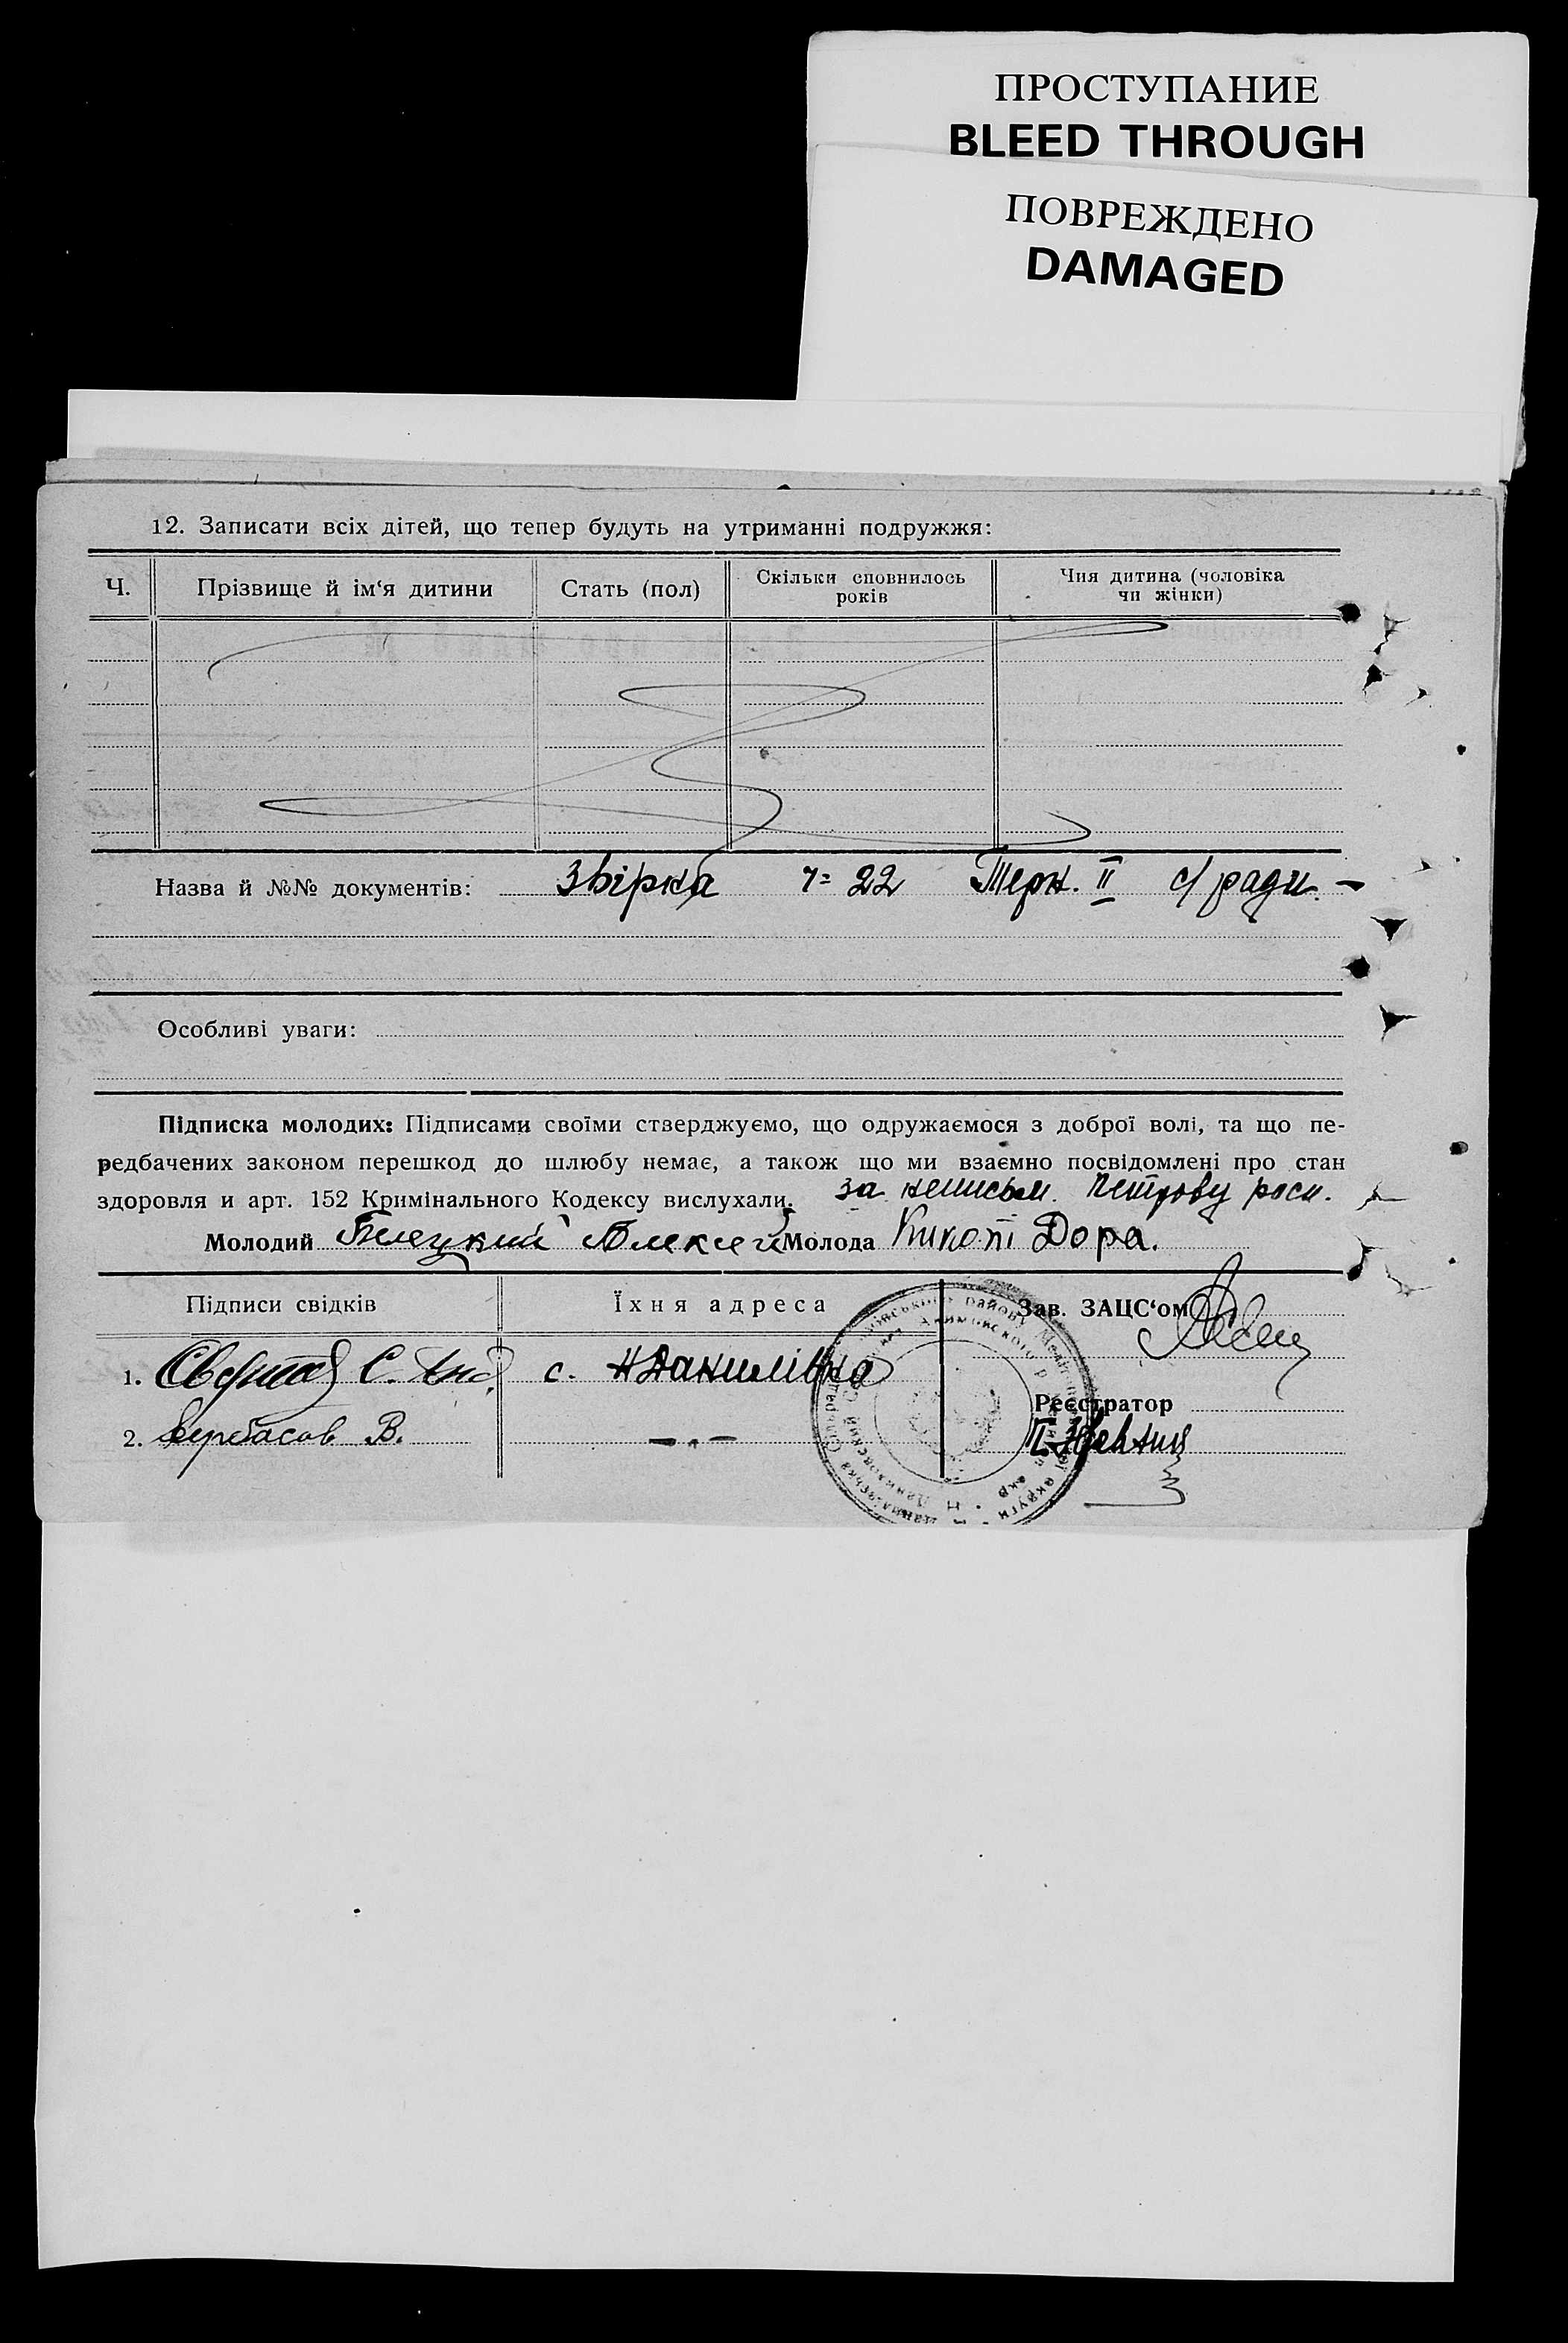 ПРОСТУПАНИЕ
BLEED THROUGH
ПОВРЕЖДЕНО
DAMAGED
12. Записати всіх дітей, що тепер будуть на утриманні подружжя:
Ч.
Прізвище й ім‘я дитини
Стать (пол)
Скільки сповнилось
років
Чия дитина (чоловіка
чи жінки)
Назва й №№ документів: Звірка ч= 22 Терн. II с/ради. –
Особливі уваги:
Підписка молодих: Підписами своїми стверджуємо, що одружаємося з доброї волі, та що пе-
редбачених законом перешкод до шлюбу немає, а також що ми взаємно посвідомлені про стан
здоровля и арт. 152 Кримінального Кодексу вислухали. за неписьм.
Молодий Билецкий Алексей Молода Кикоті Дора.
Підписи свідків
Їхня адреса
Зав. ЗАЦС‘ом
1. с. НДанилівка
Реєстратор
2. В. –„–